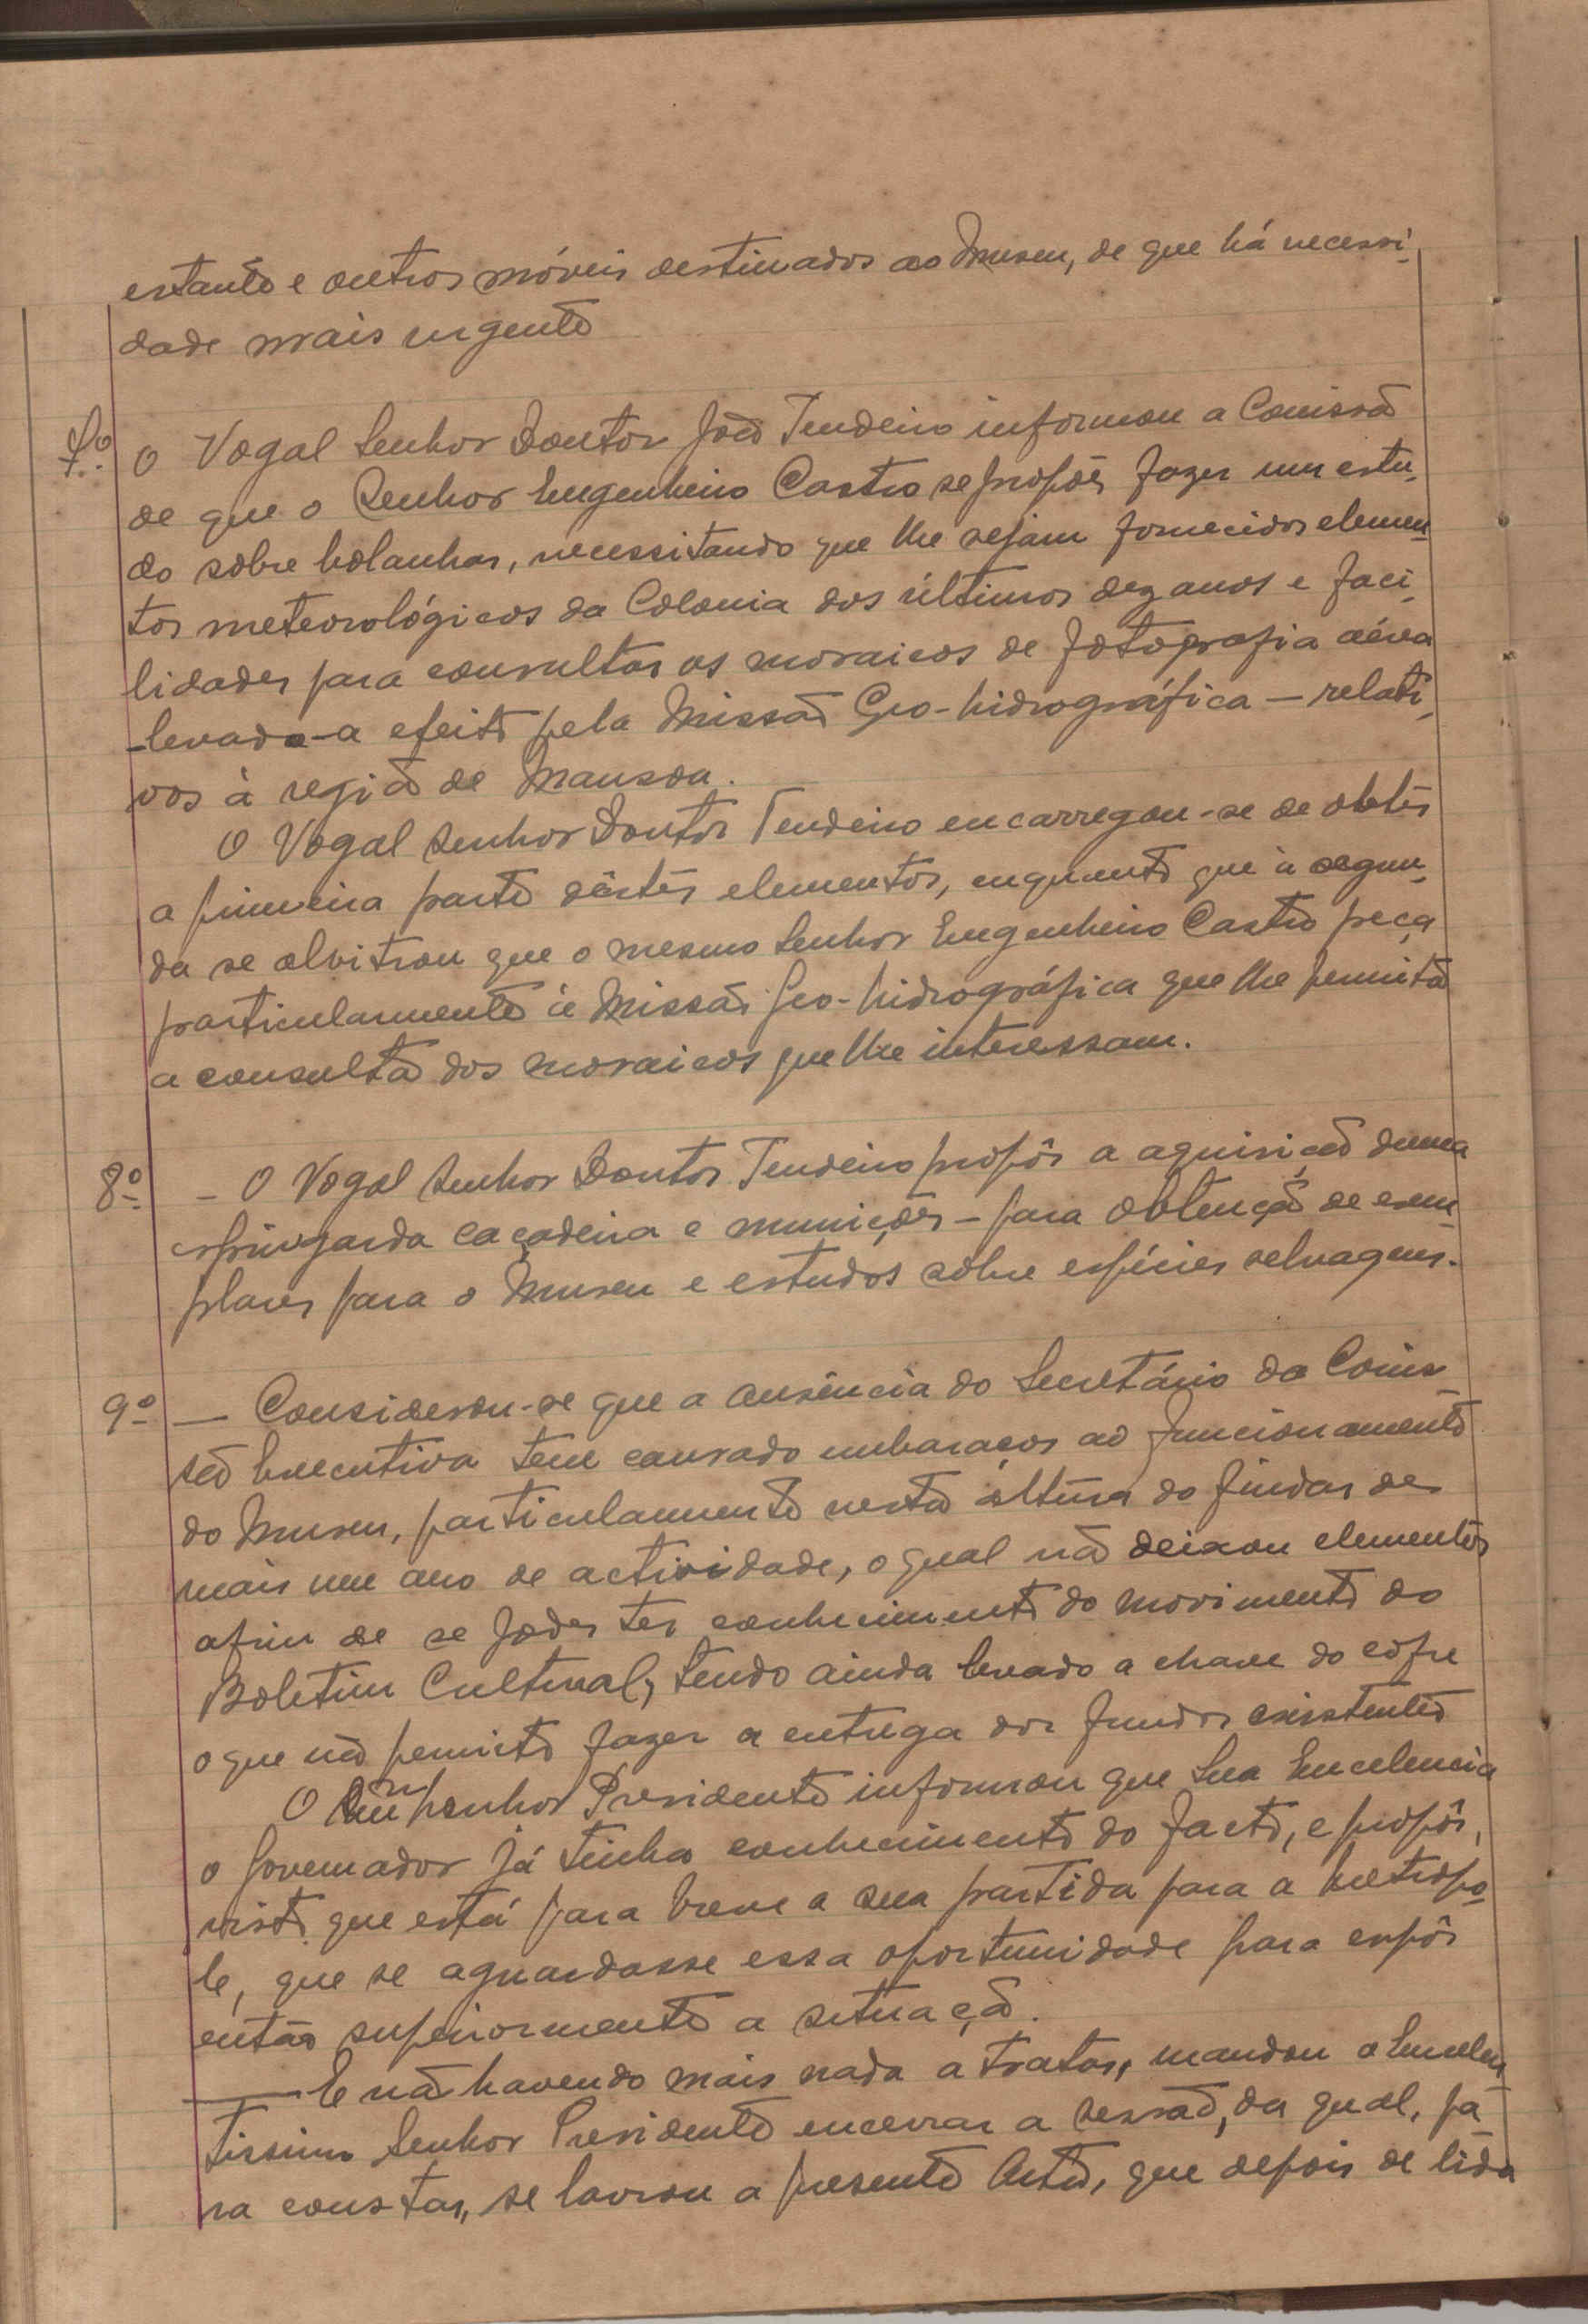 estante e outros móveis destinados ao Museu, de que há necessi-
dade mais urgente
7º. O Vogal Senhor Doutor João Tendeiro informou a Comissão
de que o Senhor Engenheiro Castro se propõe fazer um estu-
do sobre bolanhas, necessitando que lhe sejam fornecidos elemen-
tos meteorológicos da Colonia dos últimos dez anos e faci-
lidades para consultar os mosaicos de fotografia aérea
-levada-a efeito pela Missão Geo-hidrográfica — relati-
vos à região de Mansoa.
O Vogal Senhor Doutor Tendeiro encarregou-se de obter
a primeira parte dêstes elementos, enquanto que à segun-
da se alvitrou que o mesmo Senhor Engenheiro Castro peça
particularmente à Missão Geo-hidrográfica que lhe permita
a consulta dos mosaicos que lhe interessam.
8º - O Vogal Senhor Doutor Tendeiro propôs a aquisição duma
espingarda caçadeira e munições - para obtenção de exem-
plares para o Museu e estudos sôbre espécies selvagens.
9º — Considerou-se que a ausência do Secretário da Comis-
são Executiva tem causado embaraços ao funcionamento
do Museu, particularmente nesta altura do findar de
mais um ano de actividade, o qual não deixou elementos
afim de se poder ter conhecimento do movimento do
Boletim Cultural, tendo ainda levado a chave do cofre
o que não permite fazer a entrega dos fundos existentes
O Senhor Presidente informou que Sua Excelencia
o Governador já tinha conhecimento do facto, e propôs,
visto que está para breve a sua partida para a Metrópo-
le, que se aguardasse essa oportunidade para expôr
então superiormente a situação.
— E não havendo mais nada a tratar, mandou o Excelen-
tissimo Senhor Presidente encerrar a sessão, da qual, pa-
ra constar, se lavrou a presente Acta, que depois de lida